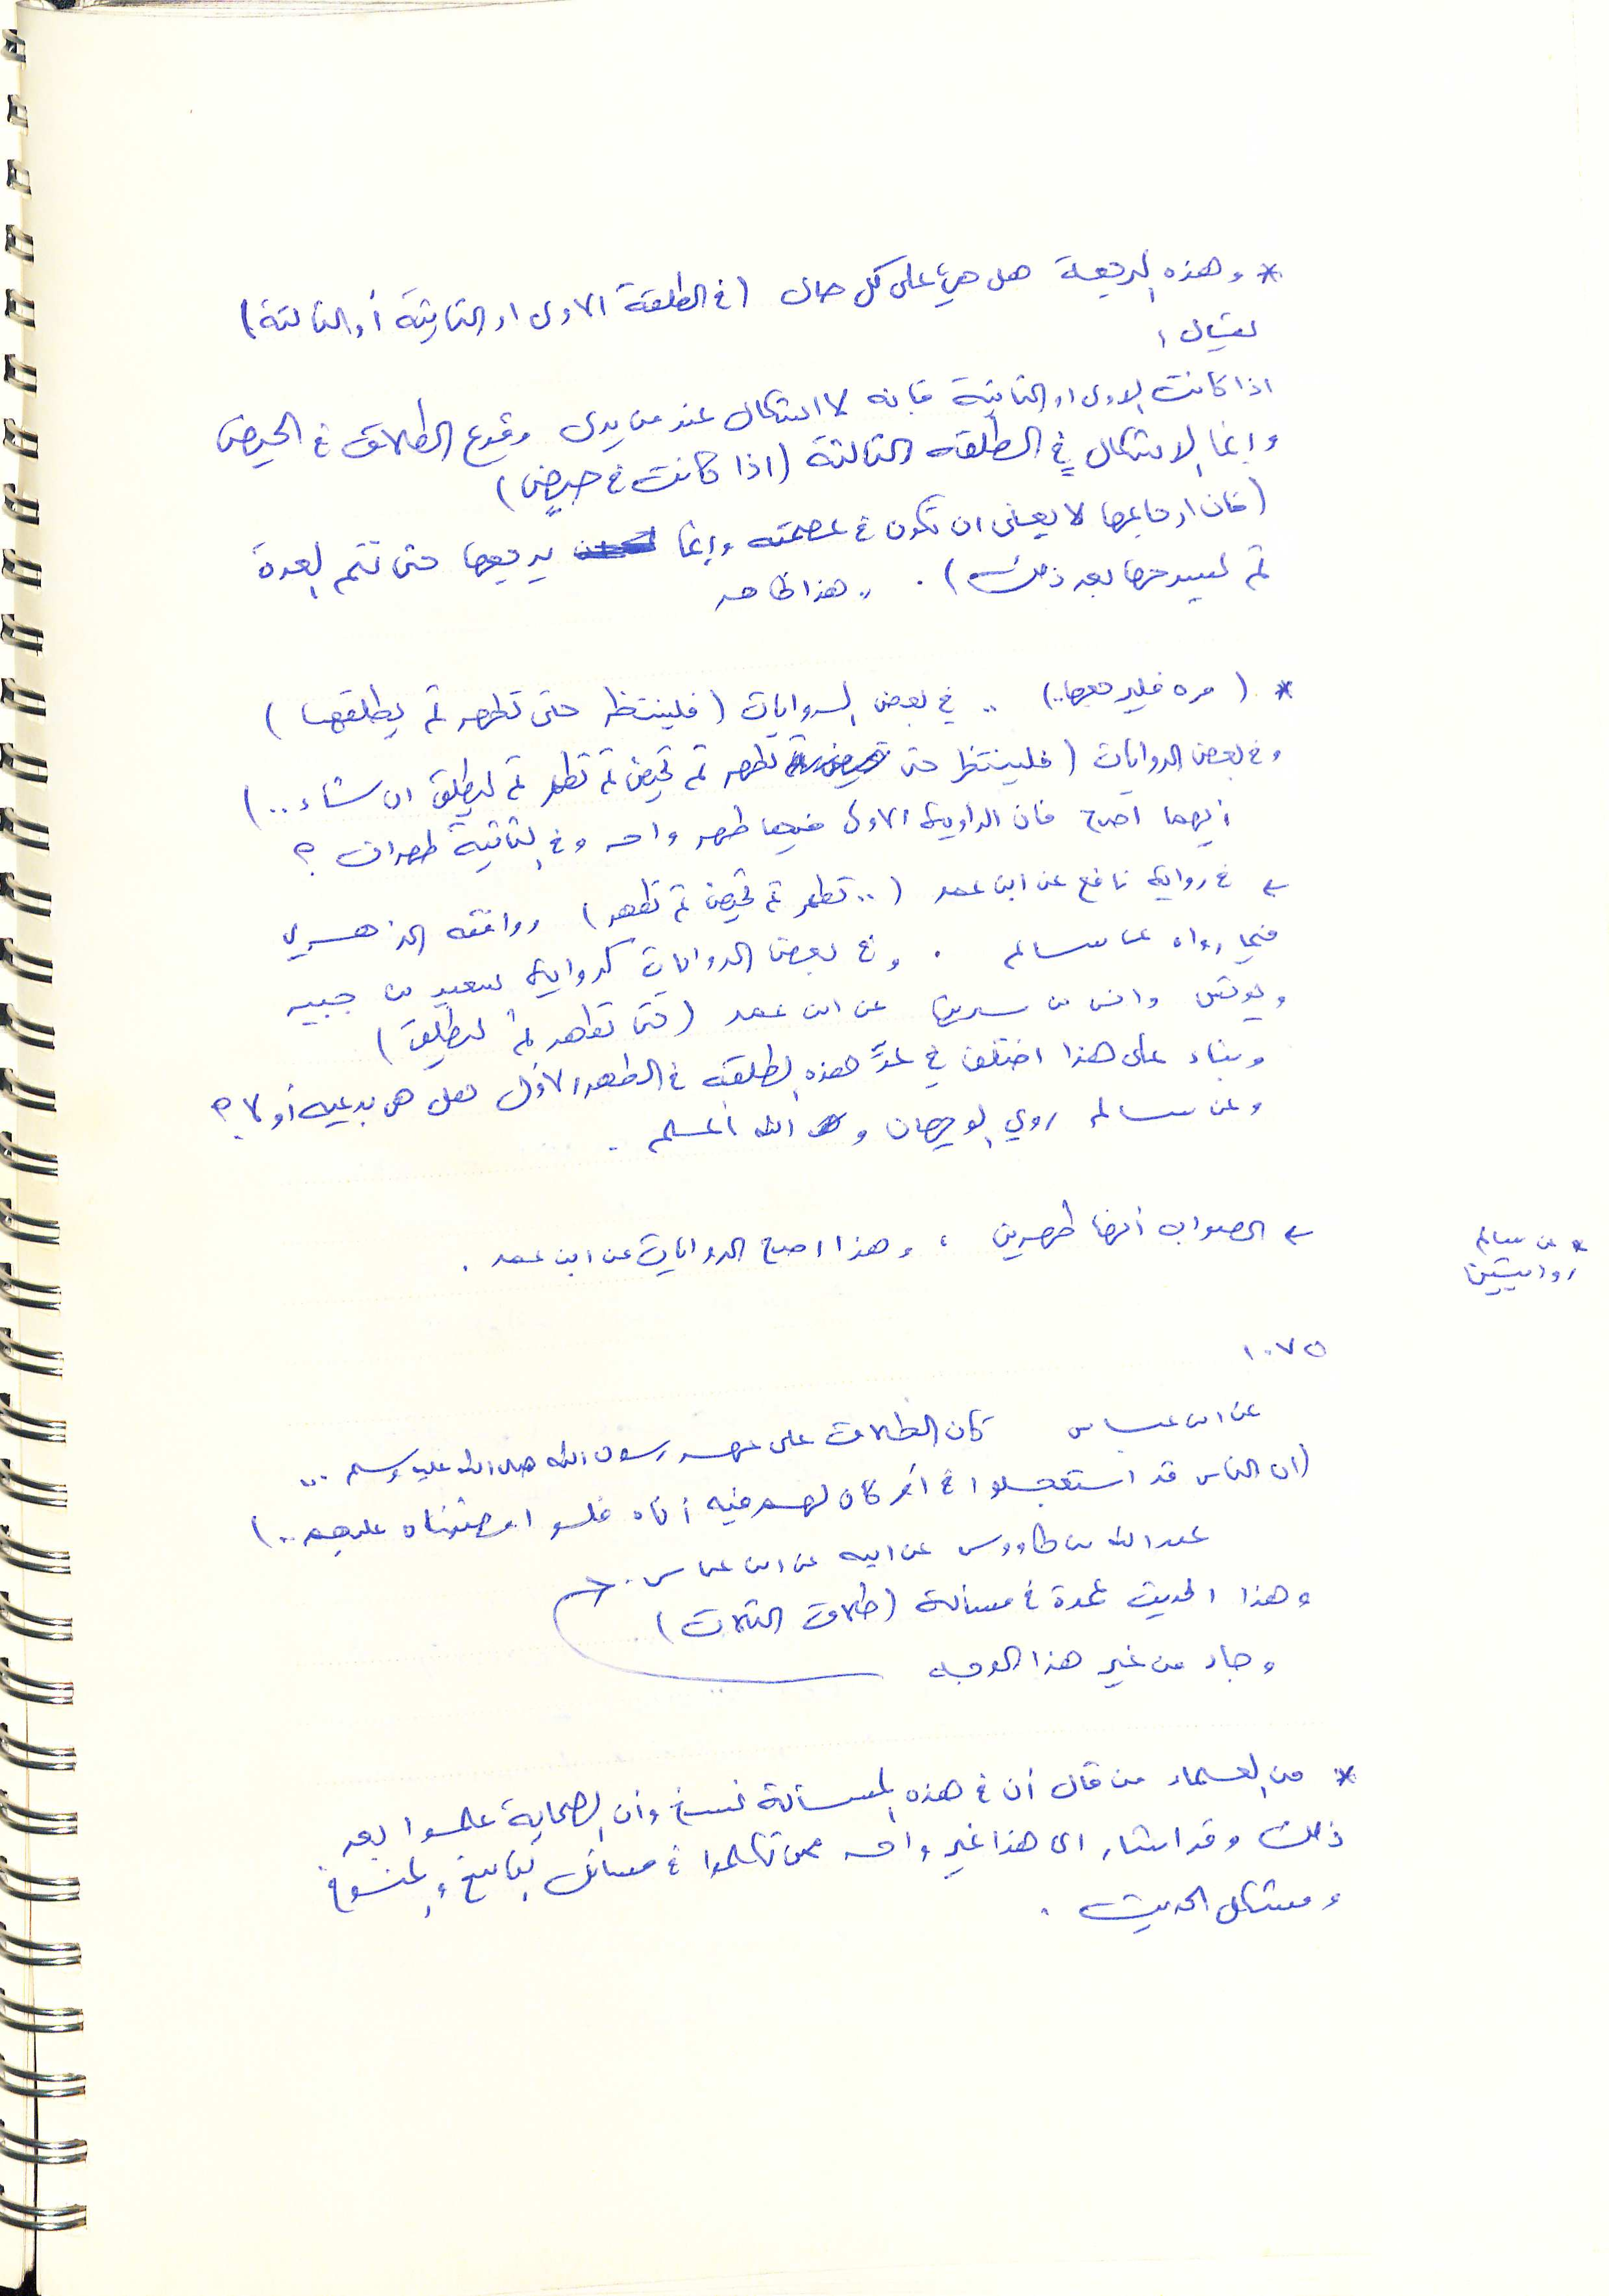 * وهذه الرجعة هل هي على كل حال (في الطلقة الاولى او الثانية أو الثالثة)
يقال :
اذا كانت الاولى او الثانية فانه لا اشكال عند من يرى وقوع الطلاق في الحيض
وإنما الاشكال في الطلقه الثالثة (اذا كانت في حيضٍ)
(فان ارجاعها لا يعني ان تكون في عصمته وإنما يرجعها حتى تتم العدة
ثم يسرحها بعد ذلك) . .. هذا ظاهر
* (مره فليرجعها..) .. في بعض الروايات (فلينتظر حتى تطهر ثم يطلقها)
وفي بعض الروايات (فلينتظر حتى تطهر ثم تحيض ثم تطهر ثم ليطلق ان شاء ..)
أيهما اصح فان الرواية الاولى فيها طهر واحد وفي الثانية طهران ؟
← في رواية نافع عن ابن عمر (.. تطهر ثم تحيض ثم تطهر) ووافقه الزهري
فيما رواه عن سالم . وفي بعض الروايات كرواية سعيد بن جبير
ويونس وانس بن سيرين عن ابن عمر (حتى تطهر ثم ليطلق)
وبناء على هذا اختلف في عدّ هذه الطلقه في الطهر الأول هل هي بدعيه أو لا ؟
وعن سالم روي الوجهان والله أعلم .
← الصواب أنها طهرين ، وهذا اصح الروايات عن ابن عمر .
* عن سالم
روايتين
١٠٧٥
عن ابن عباس كان الطلاق على عهد رسول الله صلى الله عليه وسلم ...
(ان الناس قد استعجلوا في أمر كان لهم فيه أناه فلو امضيناه عليهم ..)
عبد الله بن طاووس عن ابيه عن ابن عباس .
وهذا الحديث عمدة في مسألة (طلاق الثلاث)
وجاء من غير هذا الوجه
* من العلماء من قال أن في هذه المسألة نسخ وأن الصحابة علموا بعد
ذلك وقد اشار الى هذا غير واحد ممن تكلموا في مسائل الناسخ والمنسوخ
ومشكل الحديث .